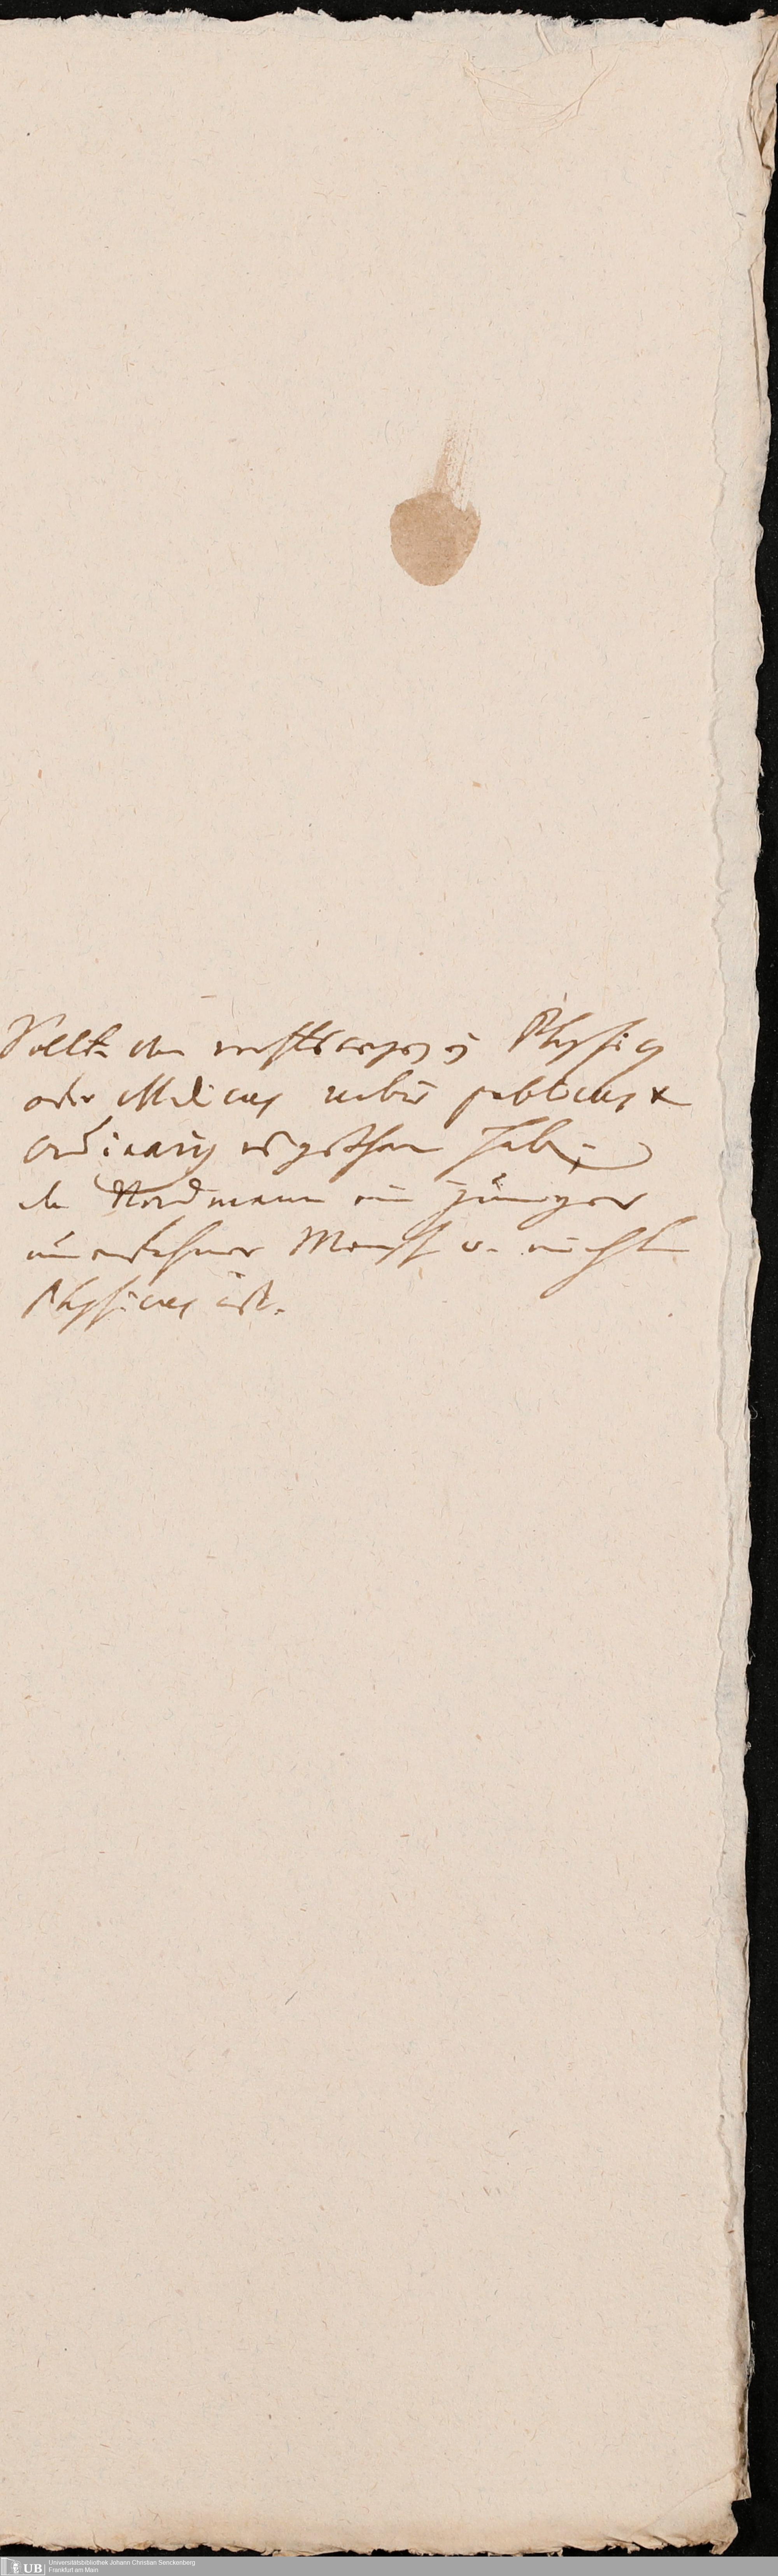 Sollte der Physicus
oder Medicus urbis publicus &
ordinarius es gethan haben,
da Nordmann ein junger
unerfahrner Mensch u. nicht
Physicus ist.
UB Universitätsbibliothek Johann Christian Senckenberg
Frankfurt am Main